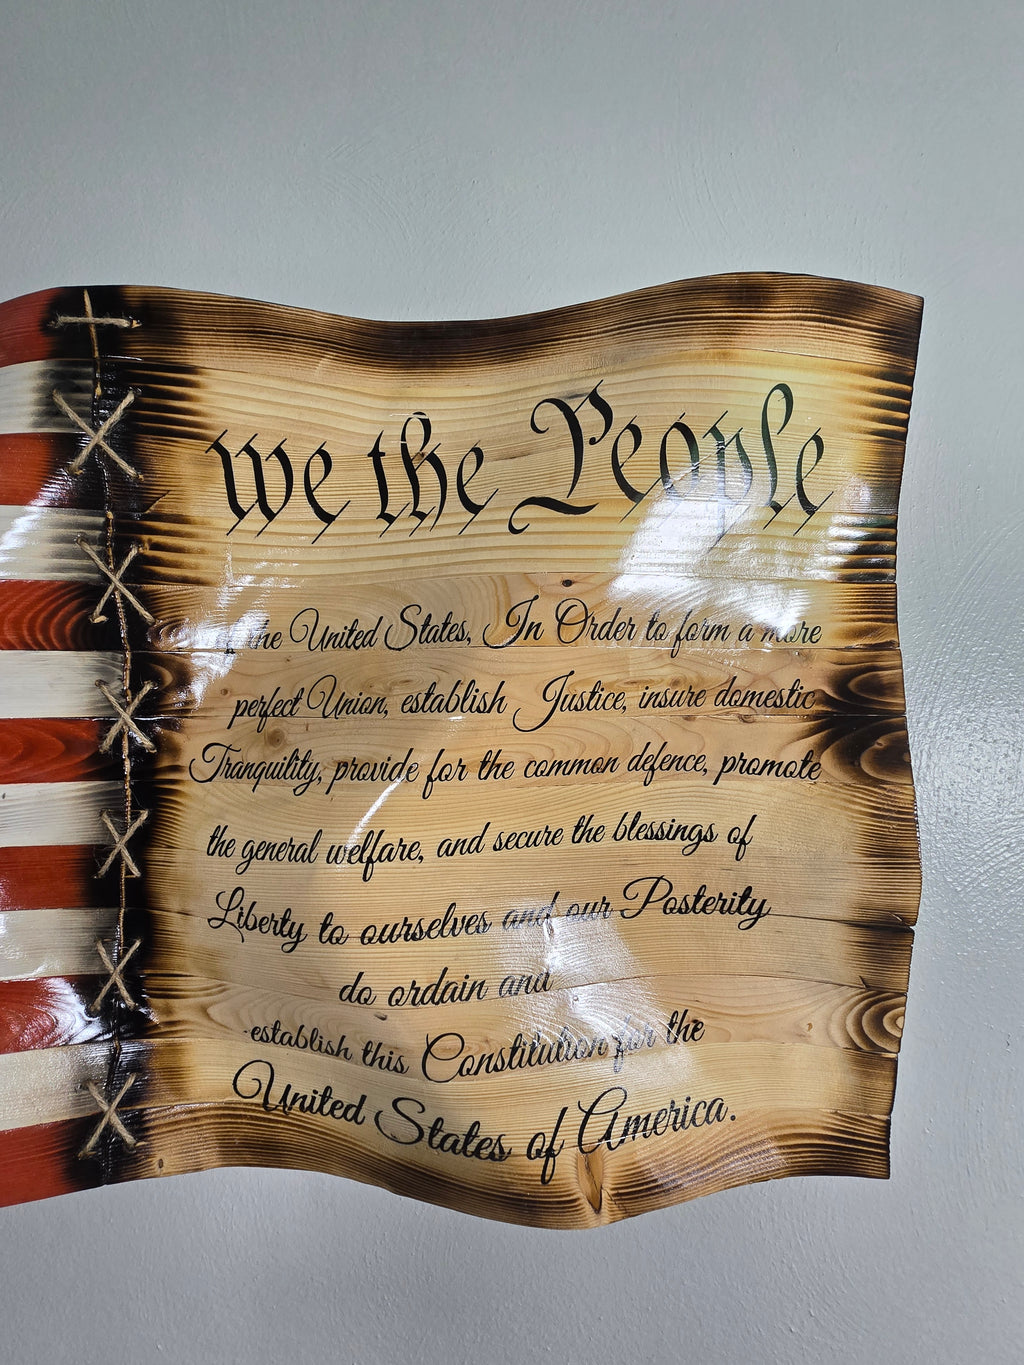 we the People
of the United States, In Order to form a more
perfect Union, establish Justice, insure domestic
Tranquility, provide for the common defence, promote
the general welfare, and secure the blessings of
Liberty to ourselves and our Posterity
do ordain and
establish this Constitution for the
United States of America.